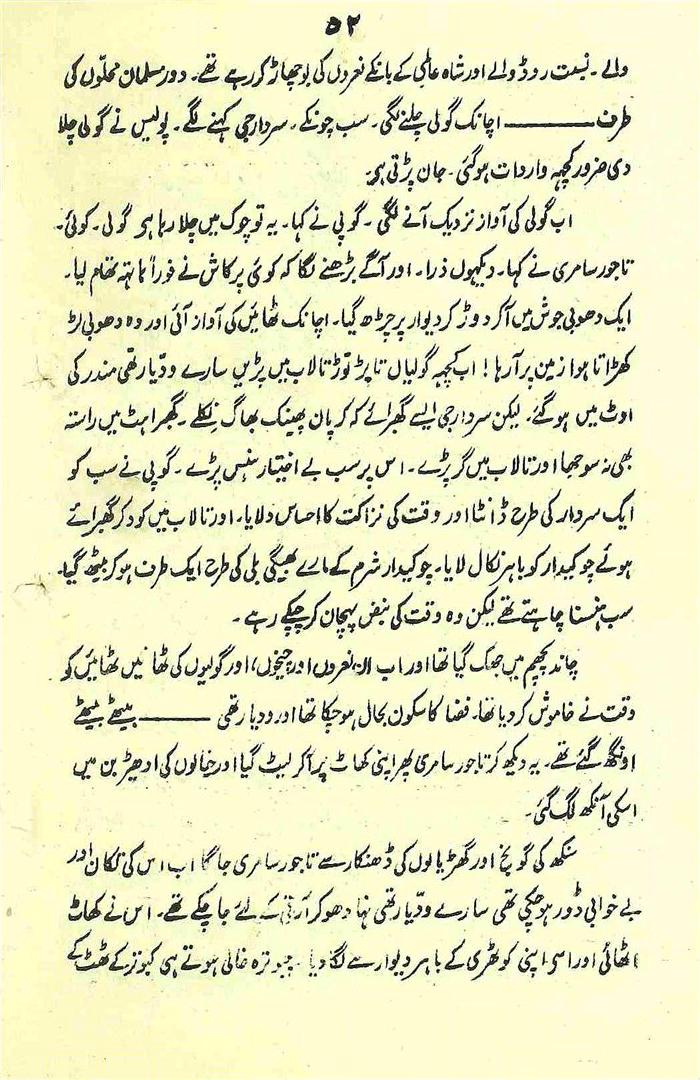 ۵۲
والے۔ نسبت روڈ والے اور شاہ عالمی کے بانکے نعروں کی بوچھاڑ کر رہے تھے۔ دور مسلمان محلّوں کی
طرف ——— اچانک گولی چلنے لگی۔ سب چونکے۔ سردار جی کہنے لگے۔ پولیس نے گولی چلا
دی ضرور کچہہ واردات ہوگئی۔ جان پڑتی ہے۔
اب گولی کی آواز نزدیک آنے لگی۔ گوپی نے کہا۔ یہ تو چوک میں چلا رہا ہے گولی۔ کوئی۔
تاجور سامری نے کہا۔ دیکہوں ذرا۔ اور آگے بڑھنے لگا کہ کوی پرکاش نے فوراً ہاتہہ تھام لیا۔
ایک دھوبی جوش میں آکر دوڑ کر دیوار پر چڑھ گیا۔ اچانک ٹھائیں کی آواز آئی اور وہ دھوبی لڑ
کھڑاتا ہوا زمین پر آرہا! اب کچہہ گولیاں تاپڑ توڑ تالاب میں پڑیں سارے ودّیارتھی مندر کی
اوٹ میں ہوگئے۔ لیکن سردار جی ایسے گھبرائے کہ کرپان پھینک بھاگ نکلے۔ گھبراہٹ میں راستہ
بھی نہ سوجھا اور تالاب میں گر پڑے۔ اس پر سب بے اختیار ہنس پڑے۔ گوپی نے سب کو
ایک سردار کی طرح ڈانٹا اور وقت کی نزاکت کا احساس دلایا۔ اور تالاب میں کود کر گھبرائے
ہوئے چوکیدار کو باہر نکال لایا۔ چوکیدار شرم کے مارے بھیگی بلی کی طرح ایک طرف ہو کر بیٹھ گیا۔
سب ہنسنا چاہتے تھے لیکن وہ وقت کی نبض پہچان کر چپکے رہے۔
چاند پچھم میں جھک گیا تھا اور اب ان نعروں اور چیخوں، اور گولیوں کی ٹھائیں ٹھائیں کو
وقت نے خاموش کردیا تھا۔ فضا کا سکون بحال ہوچکا تھا اور ودیارتھی ——— بیٹھے بیٹھے
اونگھ گئے تھے۔ یہ دیکھ کر تاجور سامری پھر اپنی کھاٹ پر آکر لیٹ گیا اور خیالوں کی ادھیڑ بن میں
اسکی آنکھ لگ گئی۔
سنکھ کی گونج اور گھڑیالوں کی ڈھنکار سے تاجور سامری جاگا اب اس کی تکان اور
بے خوابی دُور ہوچکی تھی سارے ودّیارتھی نہا دھوکر آرتی کے لئے جاچکے تھے۔ اس نے کھاٹ
اٹھائی اور اسے اپنی کوٹھری کے باہر دیوار سے لگا دیا۔ چبوترہ خالی ہوتے ہی کبوتر کے ٹھٹ کے